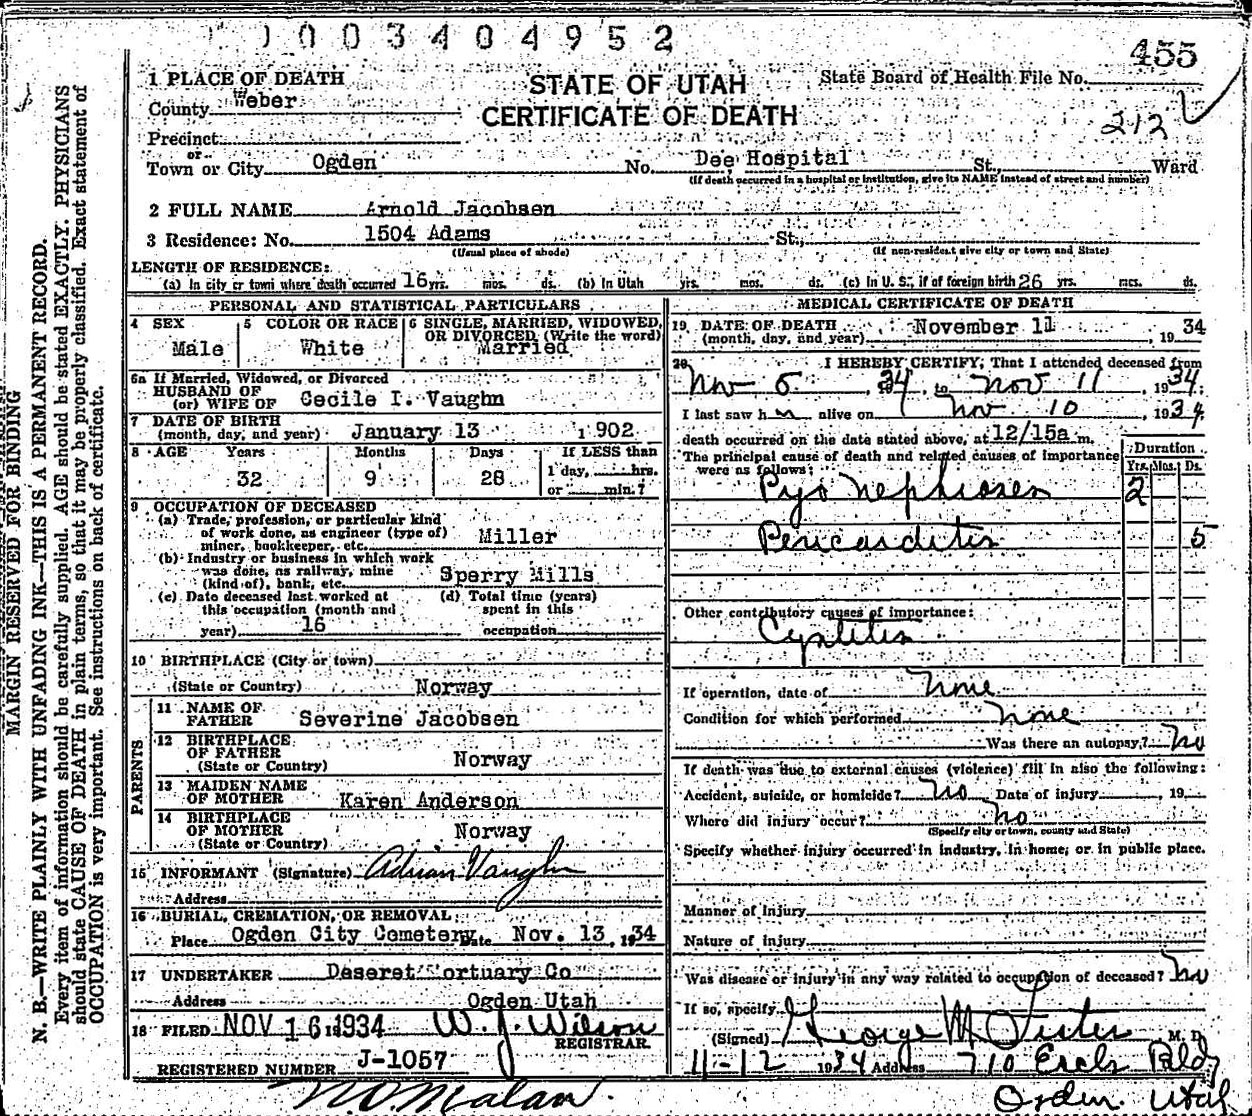 1003404952
455
1 PLACE OF DEATH
STATE OF UTAH
State Board of Health File No.
County Weber
CERTIFICATE OF DEATH
212
Precinct
or
Town or City Ogden No. Dee Hospital St., Ward
(If death occurred in a hospital or institution, give its NAME instead of street and number)
2 FULL NAME Arnold Jacobsen
3 Residence: No. 1504 Adams St.,
(Usual place of abode) (If non-resident give city or town and State)
LENGTH OF RESIDENCE:
(a) In city or town where death occurred 16 yrs. mos. ds. (b) In Utah yrs. mos. ds. (c) In U. S., if of foreign birth 26 yrs. mos. ds.
PERSONAL AND STATISTICAL PARTICULARS
4 SEX
Male
5 COLOR OR RACE
White
6 SINGLE, MARRIED, WIDOWED,
OR DIVORCED (Write the word)
Married
6a If Married, Widowed, or Divorced
HUSBAND OF
(or) WIFE OF Cecile I. Vaughn
7 DATE OF BIRTH
(month, day, and year) January 13 1902
8 AGE Years Months Days If LESS than
32 9 28 1 day, hrs.
or min.?
9 OCCUPATION OF DECEASED
(a) Trade, profession, or particular kind
of work done, as engineer (type of)
miner, bookkeeper, etc. Miller
(b) Industry or business in which work
was done, as railway, mine
(kind of), bank, etc. Sperry Mills
(c) Date deceased last worked at
this occupation (month and
year) 16
(d) Total time (years)
spent in this
occupation
10 BIRTHPLACE (City or town)
(State or Country) Norway
PARENTS
11 NAME OF
FATHER Severine Jacobsen
12 BIRTHPLACE
OF FATHER
(State or Country) Norway
13 MAIDEN NAME
OF MOTHER Karen Anderson
14 BIRTHPLACE
OF MOTHER
(State or Country) Norway
15 INFORMANT (Signature) Adrian Vaughn
Address
16 BURIAL, CREMATION, OR REMOVAL:
Place Ogden City Cemetery Date Nov. 13, 1934
17 UNDERTAKER Deseret Mortuary Co
Address Ogden Utah
18 FILED NOV 16 1934 W. J. Wilson
REGISTRAR.
REGISTERED NUMBER J-1057
MEDICAL CERTIFICATE OF DEATH
19 DATE OF DEATH
(month, day, and year) November 11, 1934
20 I HEREBY CERTIFY, That I attended deceased from
Nov 6 1934, to Nov 11, 1934.
I last saw him alive on Nov 10, 1934,
death occurred on the date stated above, at 12/15a m.
The principal cause of death and related causes of importance
were as follows:
Duration
Yrs. Mos. Ds.
Pyo nephrosis 2
Pericarditis 5
Other contributory causes of importance:
Cystitis
If operation, date of None
Condition for which performed None
Was there an autopsy? No
If death was due to external causes (violence) fill in also the following:
Accident, suicide, or homicide? No Date of injury 19
Where did injury occur? No
(Specify city or town, county and State)
Specify whether injury occurred in industry, in home, or in public place.
Manner of injury
Nature of injury
Was disease or injury in any way related to occupation of deceased? No
If so, specify
(Signed) George M Fister M. D.
11-12 1934 Address 710 Eccls Bldg
Ogden, Utah
MARGIN RESERVED FOR BINDING
N. B.—WRITE PLAINLY WITH UNFADING INK—THIS IS A PERMANENT RECORD.
Every item of information should be carefully supplied. AGE should be stated EXACTLY. PHYSICIANS
should state CAUSE OF DEATH in plain terms, so that it may be properly classified. Exact statement of
OCCUPATION is very important. See instructions on back of certificate.